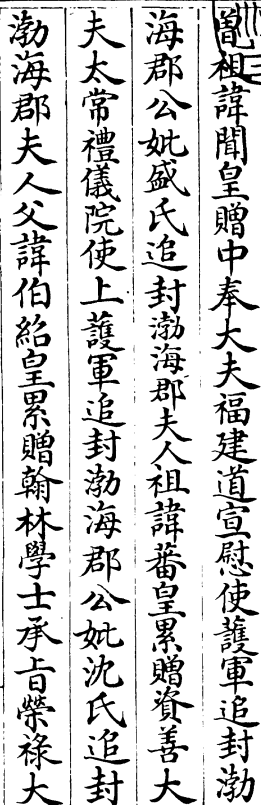 祖諱聞皇贈中奉大夫福建道宣慰使護軍追封渤
海郡公妣盛氏追封渤海郡夫人祖諱蕃皇累贈資善大
夫太常禮儀院使上護軍追封渤海郡公妣沈氏追封
渤海郡夫人父諱伯紹皇累贈翰林學士承旨榮祿大